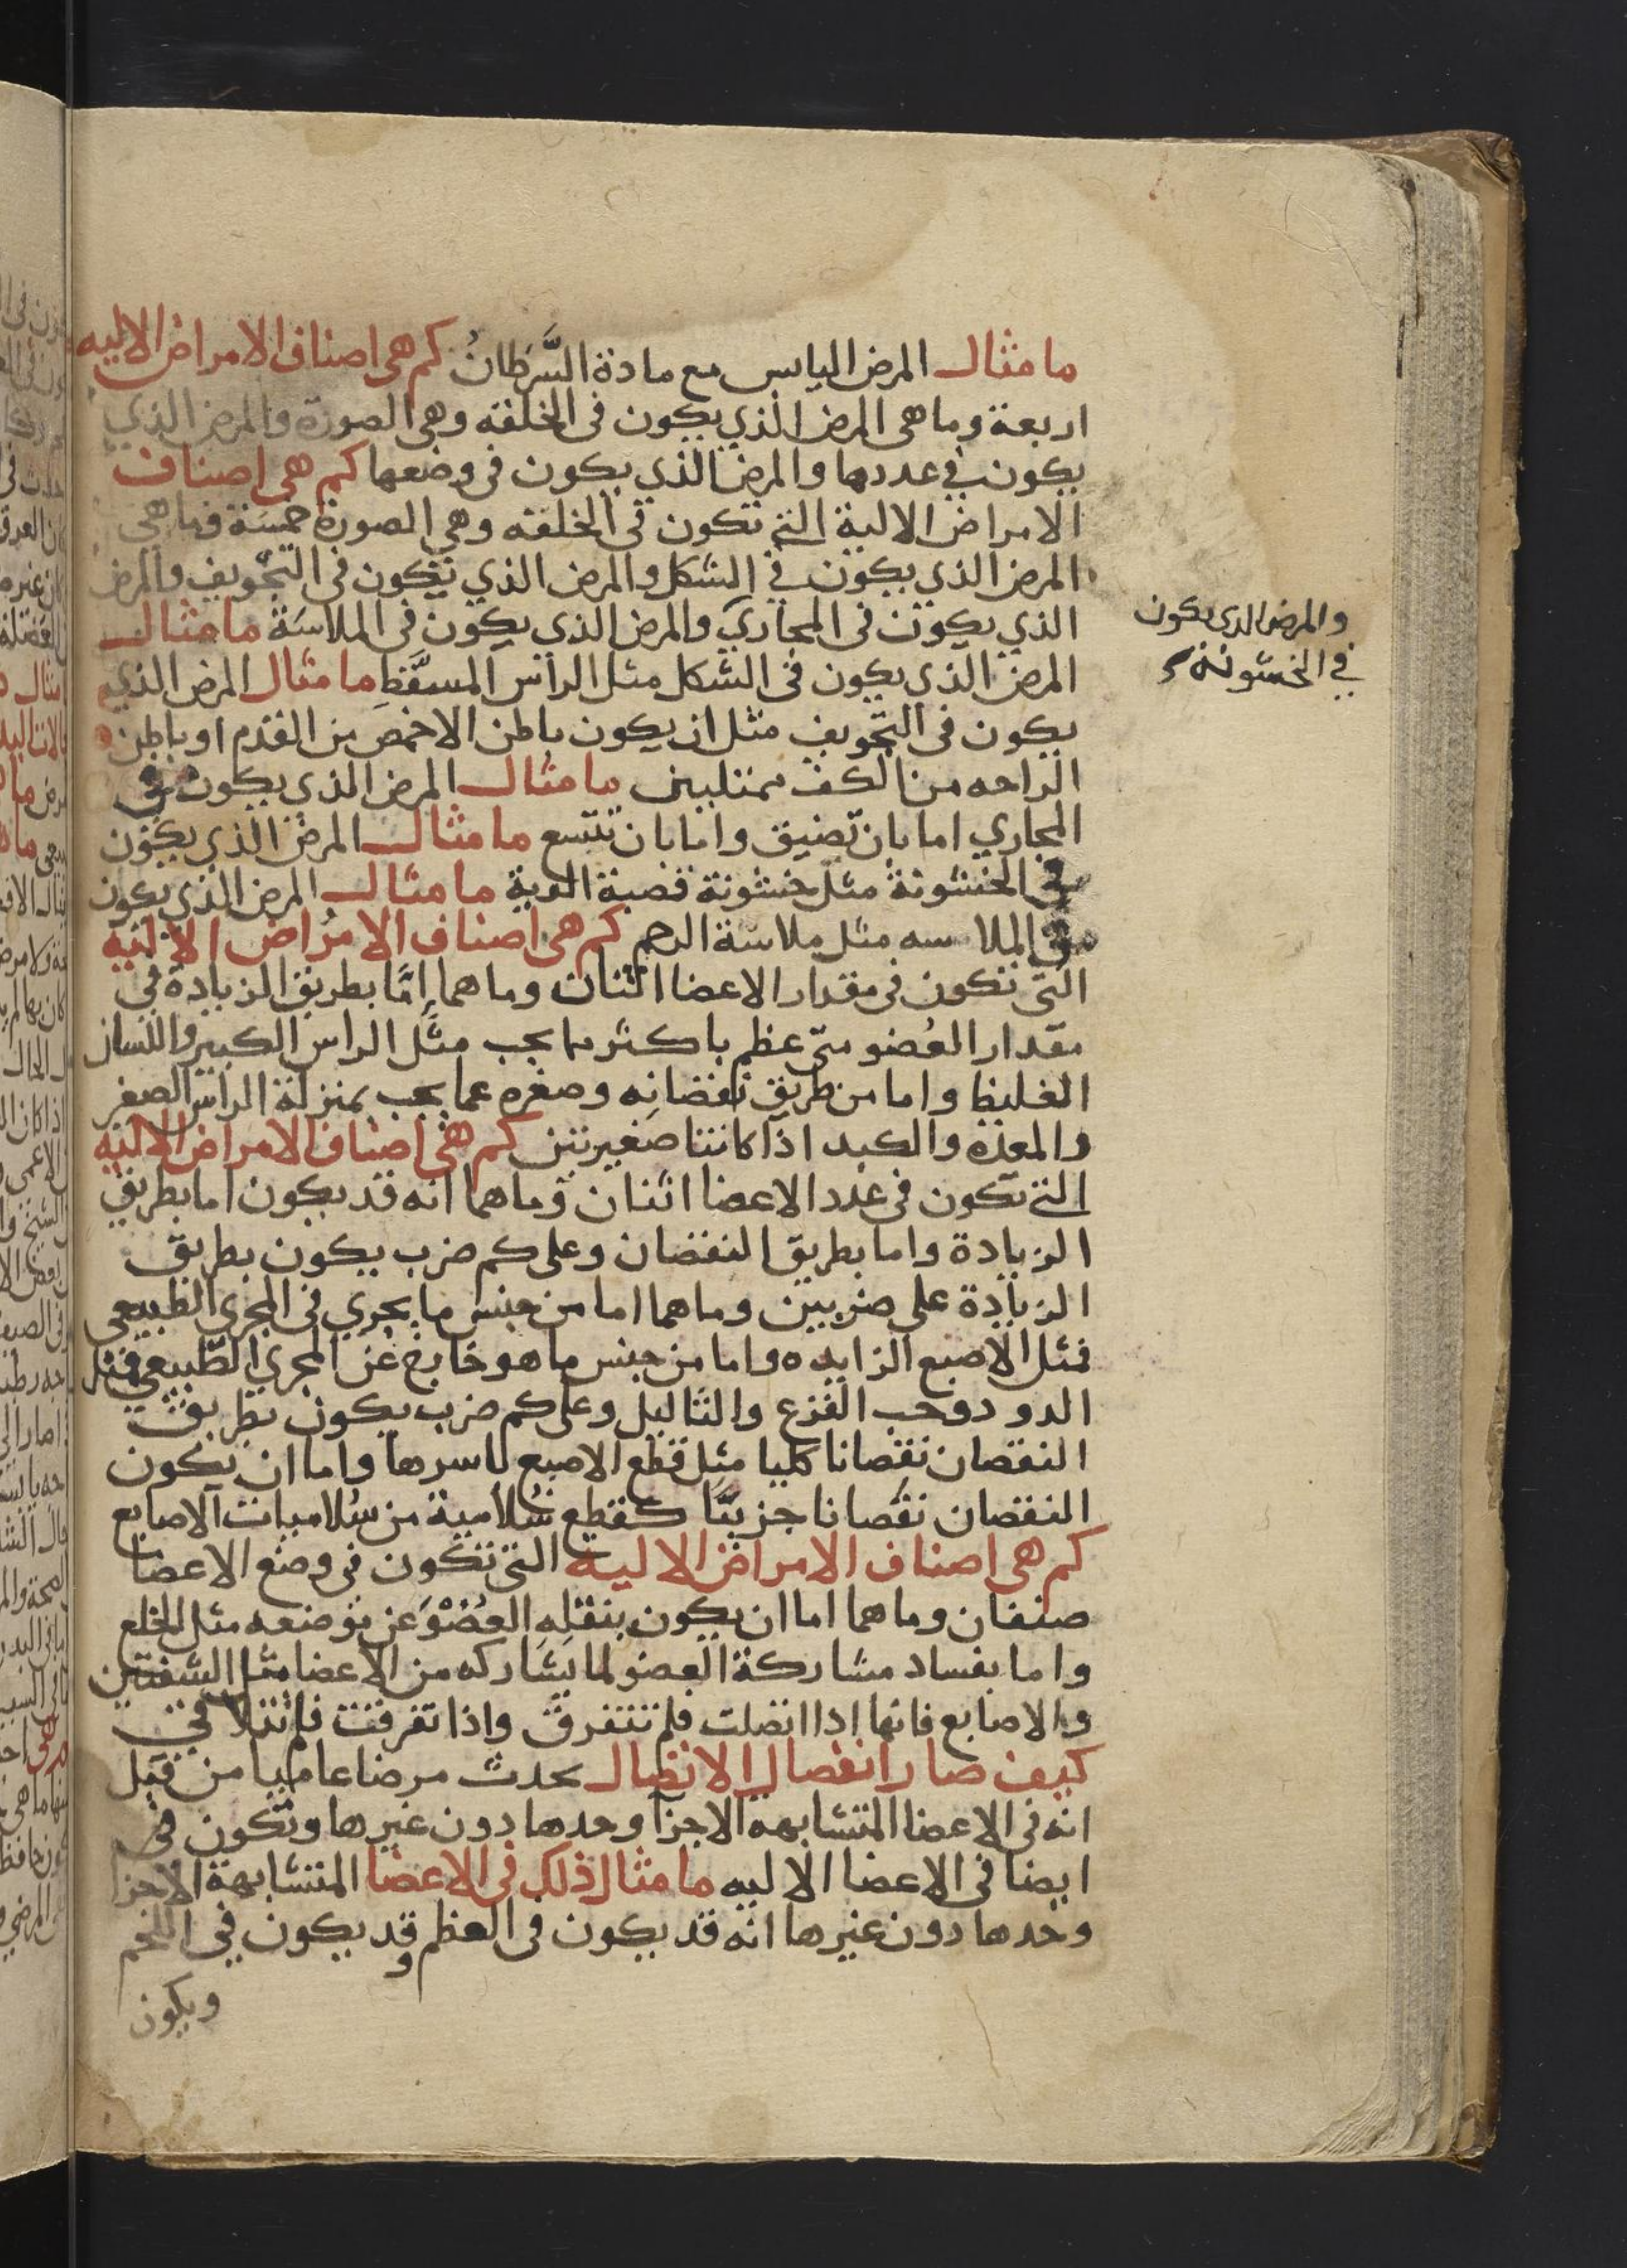 ما مثال المرض اليابس مع مادة السَّرَطانُ كم هي اصناف الامراض الاليه
اربعة وما هي المرض الذي يكون في الخلقه وهي الصورة والمرض الذي
يكون في عددها والمرض الذي يكون في وضعها كم هي اصناف
الامراض الالية التي تكون في الخلقه وهي الصورة خمسة فما هي
المرض الذي يكون في الشكل والمرض الذي يكون في التجويف والمرض
الذي يكون في المجاري والمرض الذي يكون في الملاسَة ما مثال
والمرض الذى يكون
في الخشونة
المرض الذي يكون في الشكل مثل الراس المسفَّط ما مثال المرض الذي
يكون في التجويف مثل ان يكون باطن الاخمص من القدم او باطن
الراحه من الكف ممتليين ما مثال المرض الذي يكون في
المجاري اما بان تضيق واما بان تتسع ما مثال المرض الذي يكون
في الخشونة مثل خشونة قصبة الرية ما مثال المرض الذي يكون
في الملاسه مثل ملاسة الرحم كم هي اصناف الامراض الالية
التي تكون في مقدار الاعضا اثنان وما هما إمَّا بطريق الزيادة في
مقدار العُضو متى عظم باكثر مما يجب مثل الراس الكبير واللسان
الغليظ واما من طريق نقصانه وصغره عما يجب بمنزلة الراس الصغير
والمعده والكبد اذا كانتا صغيرتين كم هي اصناف الامراض الاليه
التي تكون في عدد الاعضا اثنان وما هما انه قد يكون اما بطريق
الزيادة واما بطريق النقصان وعلى كم ضرب يكون بطريق
الزيادة على ضربين وما هما اما من جنس ما يجري في المجرى الطبيعي
فمثل الاصبع الزايده واما من جنس ما هو خارج عن المجرى الطبيعي فمثل
الدود وحب القزع والثاليل وعلى كم ضرب يكون بطريق
النقصان نقصانا كليا مثل قطع الاصبع باسرها واما ان يكون
النقصان نقصانا جزيًّا كقطع سُلامية من سُلاميات الاصابع
كم هي اصناف الامراض الاليه التي تكون في وضع الاعضا
صنفان وما هما اما ان يكون بنقله العُضْو عن موضعه مثل الخلع
واما بفساد مشاركة العضو لما يشاركه من الاعضا مثل الشفتين
والاصابع فانها اذا اتصلت فلم تتفرق واذا تفرقت فلم تتلاقي
كيف صار انفصال الاتصال يحدث مرضا عاميا من قبل
انه في الاعضا المتشابهه الاجزآ وحدها دون غيرها وتكون في
ايضا في الاعضا الاليه ما مثال ذلك في الاعضا المتشابهة الاجزا
وحدها دون غيرها انه قد يكون في العظم وقد يكون في اللحم
ويكون